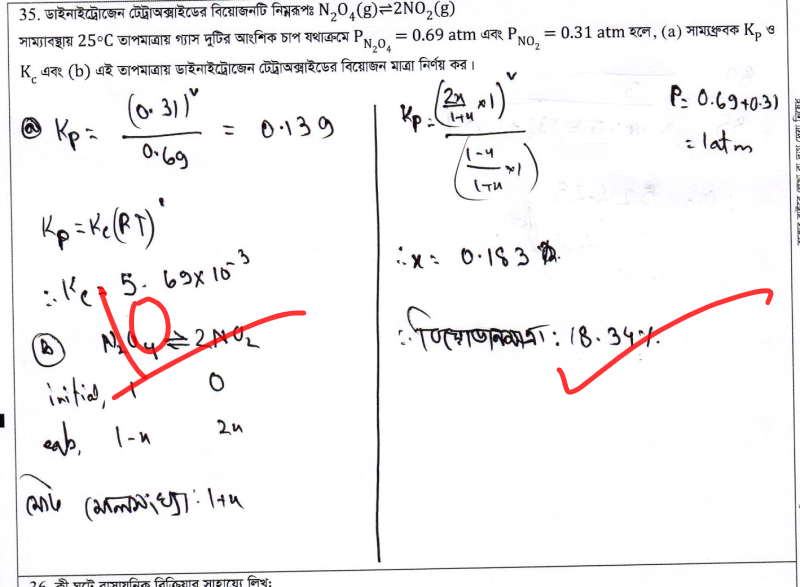 35. ডাইনাইট্রোজেন টেট্রাঅক্সাইডের বিয়োজনটি নিম্নরূপঃ N₂O₄(g)⇌2NO₂(g)
সাম্যাবস্থায় 25°C তাপমাত্রায় গ্যাস দুটির আংশিক চাপ যথাক্রমে P_N₂O₄ = 0.69 atm এবং P_NO₂ = 0.31 atm হলে, (a) সাম্যধ্রুবক Kₚ ও
K_c এবং (b) এই তাপমাত্রায় ডাইনাইট্রোজেন টেট্রাঅক্সাইডের বিয়োজন মাত্রা নির্ণয় কর।
ⓐ Kp = (0.31)² / 0.69 = 0.139
Kp = Kc(RT)¹
∴ Kc = 5.69x10⁻³
ⓑ N₂O₄ ⇌ 2NO₂
initial, 1 0
eqb, 1-x 2x
মোট মোলসংখ্যা: 1+x
Kp = (2x/1+x × 1)² / (1-x/1+x × 1)
P = 0.69+0.31
= 1atm
∴ x = 0.183
∴ বিয়োজনমাত্রা: 18.34%